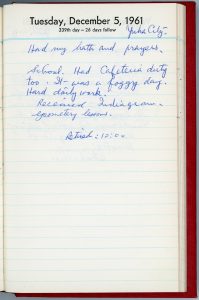 Tuesday, December 5, 1961
339th day – 26 days follow
Yuba City.
Had my bath and prayers.
School. Had Cafeteria duty
too. It was a foggy day.
Hard daily work.
Received Indiagram.
geometry lesson.
Retired: 12:00